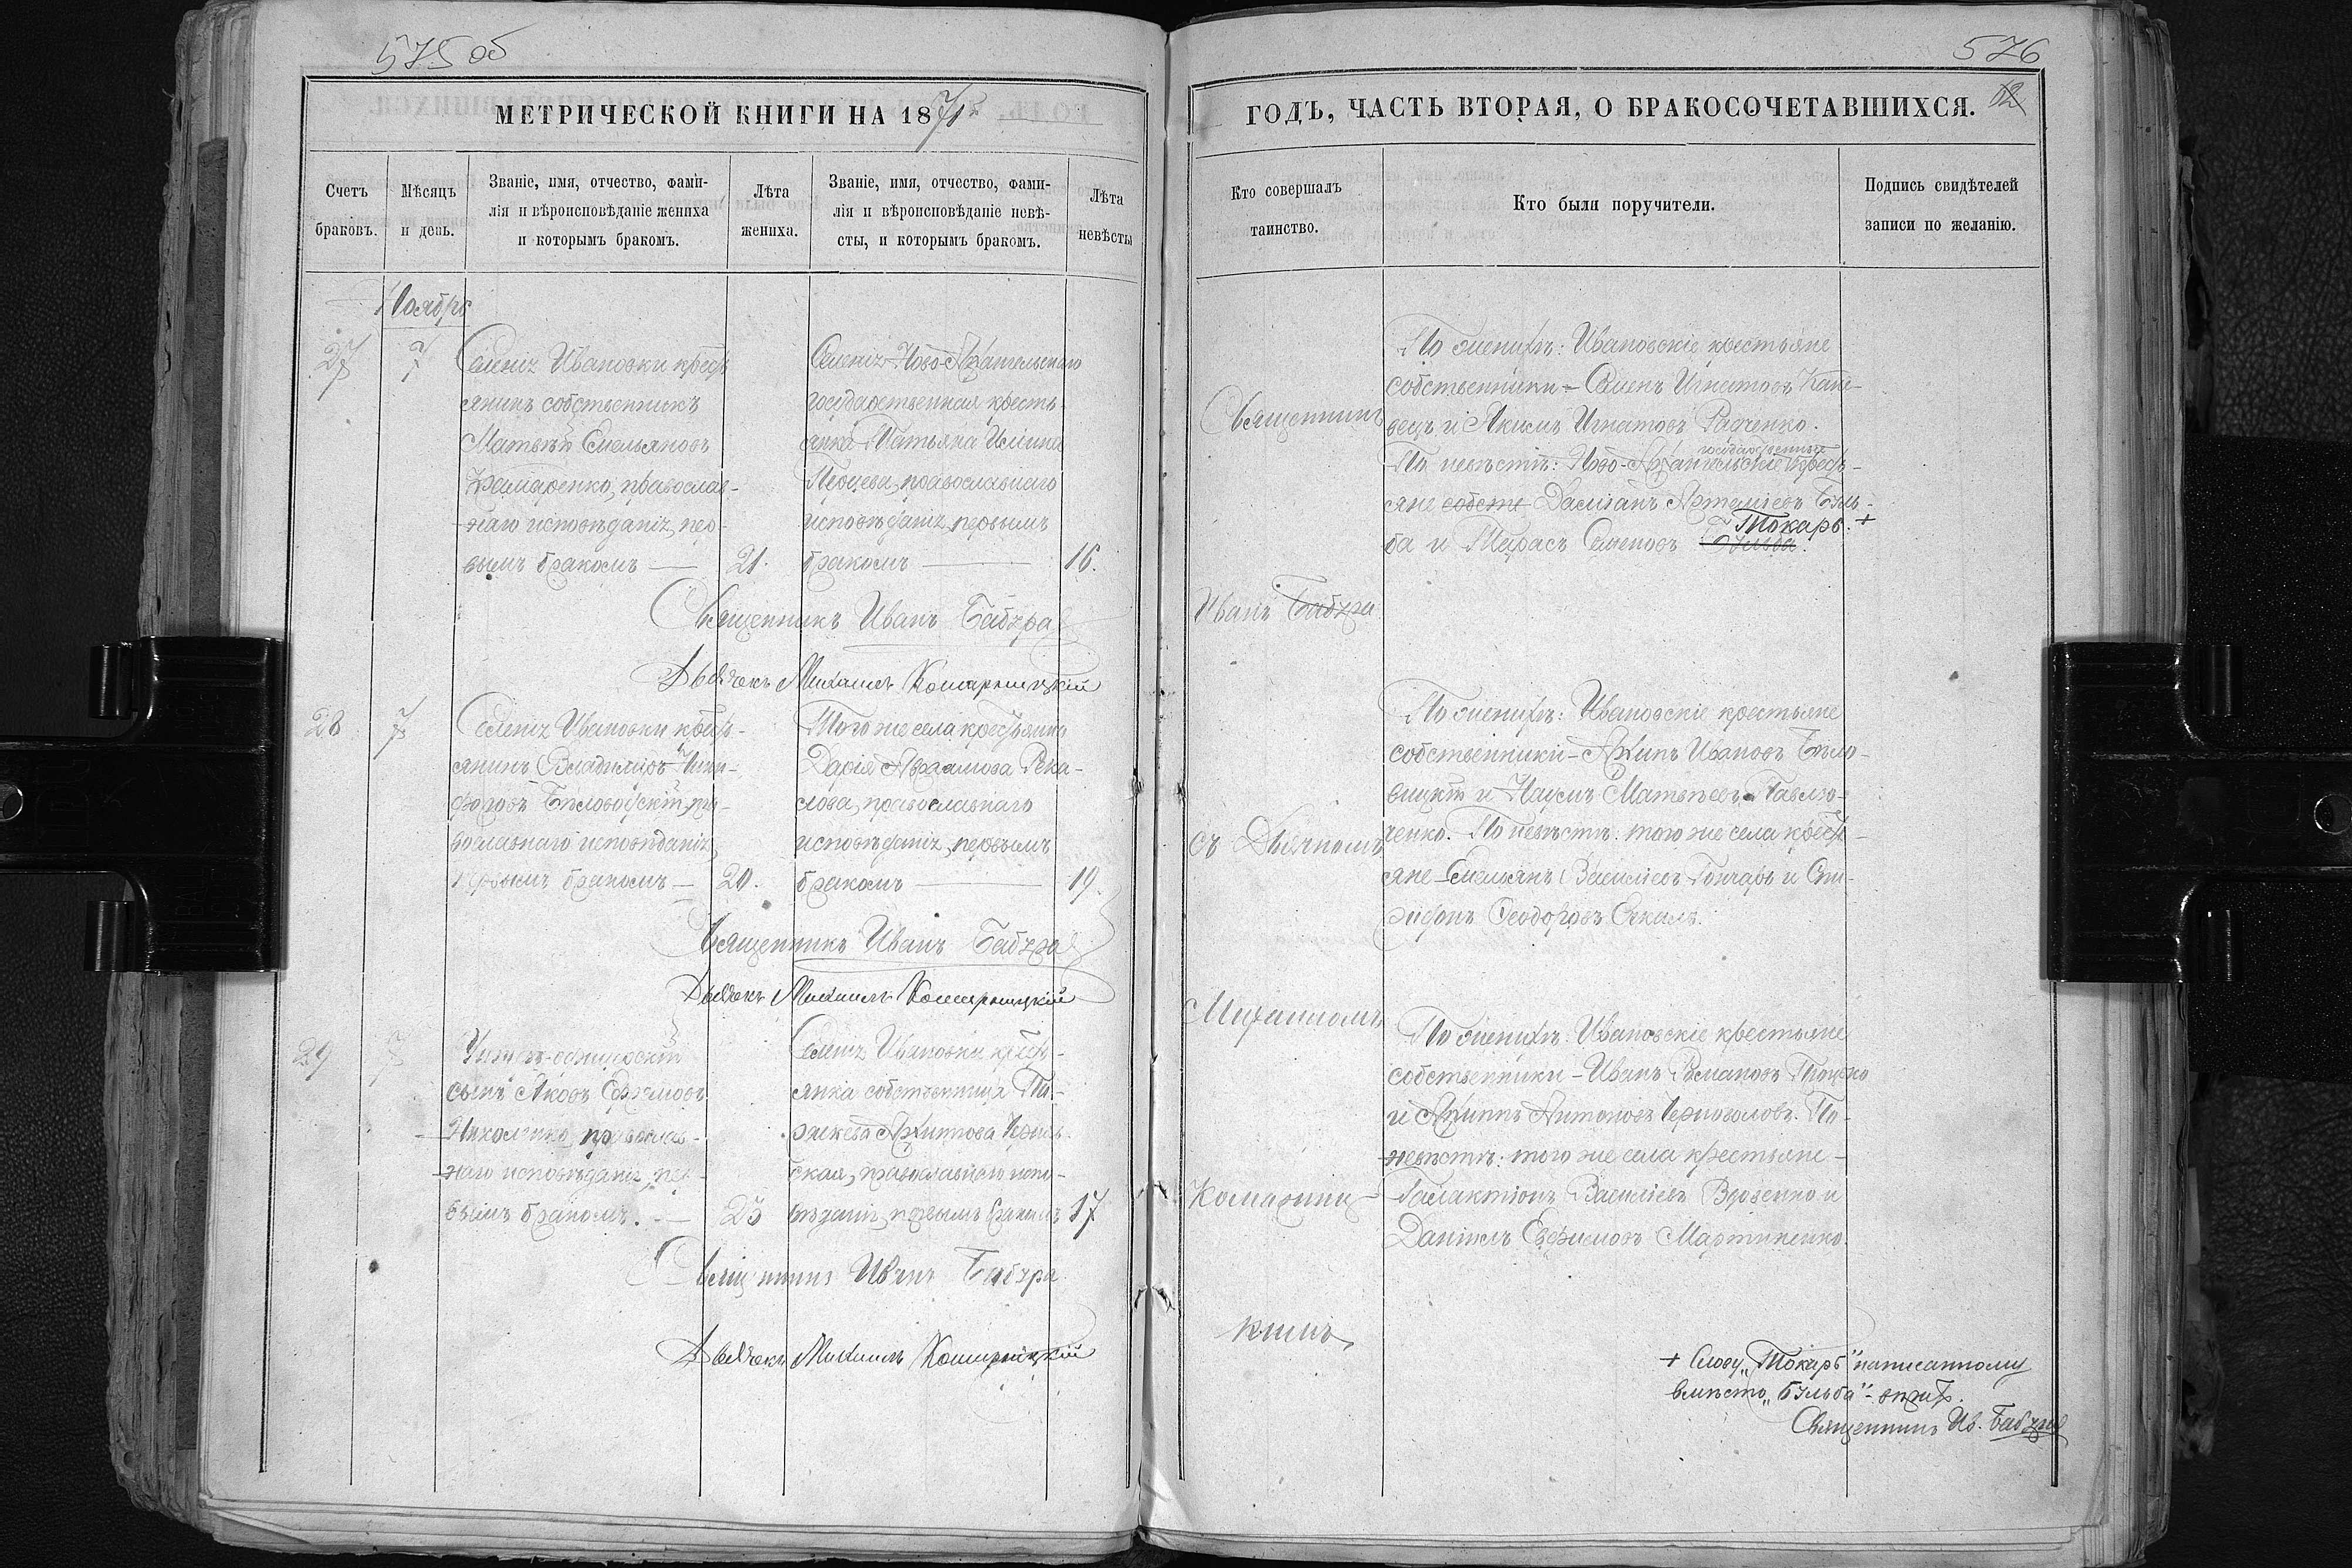 575 об
МЕТРИЧЕСКОЙ КНИГИ НА 1871й
Счетъ браковъ.
Мѣсяцъ и день.
Званіе, имя, отчество, фами-
лія и вѣроисповѣданіе жениха
и которымъ бракомъ.
Лѣта жениха.
Званіе, имя, отчество, фами-
лія и вѣроисповѣданіе невѣ-
сты, и которымъ бракомъ.
Лѣта невѣсты
Ноябрь
27
7
Селенія Ивановки крест-
янинъ собственникъ
Матвѣй Емельяновъ
православ-
наго исповѣданія, пер-
вымъ бракомъ —
21.
Селенія Ново-Архангельскаго
государственная кресть-
янка Татьяна
православнаго
исповѣданія, первымъ
бракомъ —
16.
Священникъ Иванъ Бабура
Дьячокъ Михаилъ Комарницкій
28
7
Селенія Ивановки крест-
янинъ Владиміръ Ники-
форовъ Бѣловодскій, пра-
вославнаго исповѣданія,
первымъ бракомъ —
20.
Того же села крестьянка
Дарія Авраамова Река-
лова, православнаго
исповѣданія, первымъ
бракомъ —
19.
Священникъ Иванъ Бабура
Дьячокъ Михаилъ Комарницкій
29
7
Унтеръ-офицерскій
сынъ Яковъ Ефремовъ
православ-
наго исповѣданія, пер-
вымъ бракомъ. —
23
Селенія Ивановки крест-
янка собственница Па-
раскева Архипова
православнаго испо-
вѣданія, первымъ бракомъ
17
Священникъ Иванъ Бабура
Дьячокъ Михаилъ Комарницкій
576
12
ГОДЪ, ЧАСТЬ ВТОРАЯ, О БРАКОСОЧЕТАВШИХСЯ.
Кто совершалъ
таинство.
Кто были поручители.
Подпись свидѣтелей
записи по желанію.
Священникъ
Иванъ Бабура
съ Дьячкомъ
Михаиломъ
Комарниц-
кимъ
По женихѣ: Ивановскіе крестьяне
собственники – Семенъ Игнатовъ Кане-
вецъ и Акимъ Игнатовъ Радченко.
По невѣстѣ: Ново-Архангельскіе государственные крест-
яне собств Даміанъ Артеміевъ Буль-
ба и Тарасъ Семеновъ Бульба Токарь. +
По женихѣ: Ивановскіе крестьяне
собственники – Архипъ Ивановъ Бѣло-
вицкій и Наумъ Матвѣевъ Павлю-
ченко. По невѣстѣ: того же села крест-
яне – Емельянъ Василіевъ Гончаръ и Спи-
ридонъ Феодоровъ
По женихѣ: Ивановскіе крестьяне
собственники – Иванъ Романовъ Троцько
и Архипъ Антоновъ Черноголовъ. По
невѣстѣ: того же села крестьяне –
Галактіонъ Василіевъ Вдовенко и
Даніилъ Евфимовъ Мартиненко.
+ Слову „Токарь" написанному
вмѣсто „Бульба" – вѣрить.
Священникъ Ив. Бабура